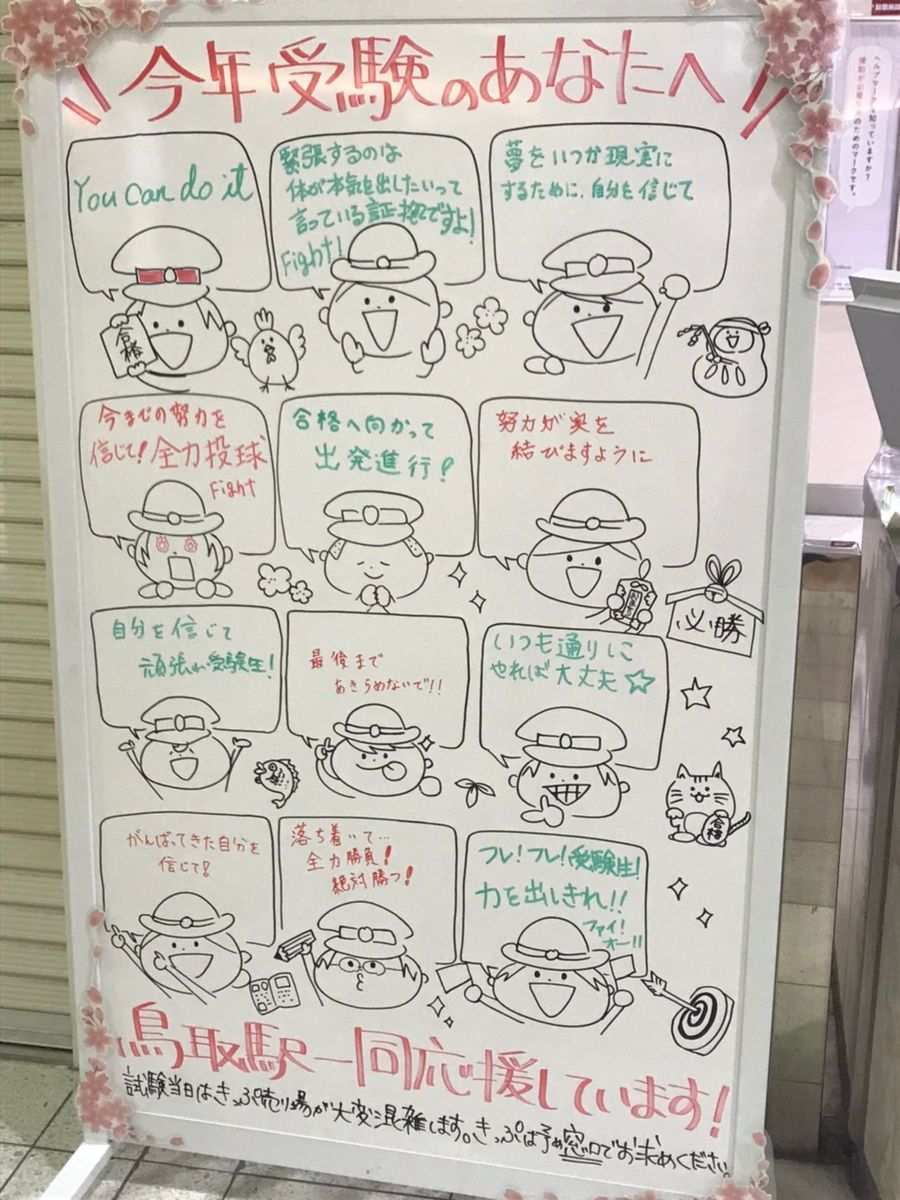 今年受験のあなたへ
You can do it
合格
緊張するのは
体が本気を出したいって
言っている証拠ですよ!
Fight!
夢をいつか現実に
するために、自分を信じて
今までの努力を
信じて!全力投球
Fight
合格へ向かって
出発進行!
努力が実を
結びますように
必勝
自分を信じて
頑張れ受験生!
最後まで
あきらめないで!!
いつも通りに
やれば大丈夫☆
合格
がんばってきた自分を
信じて!
落ち着いて…
全力勝負!
絶対勝つ!
フレ!フレ!受験生!
力を出しきれ!!
ファイ!
オー!!
鳥取駅一同応援しています!
試験当日はきっぷ売り場が大変混雑します。きっぷは予め窓口でお求めください。
ヘルプマークを知っていますか?
援助が必要な方のためのマークです。